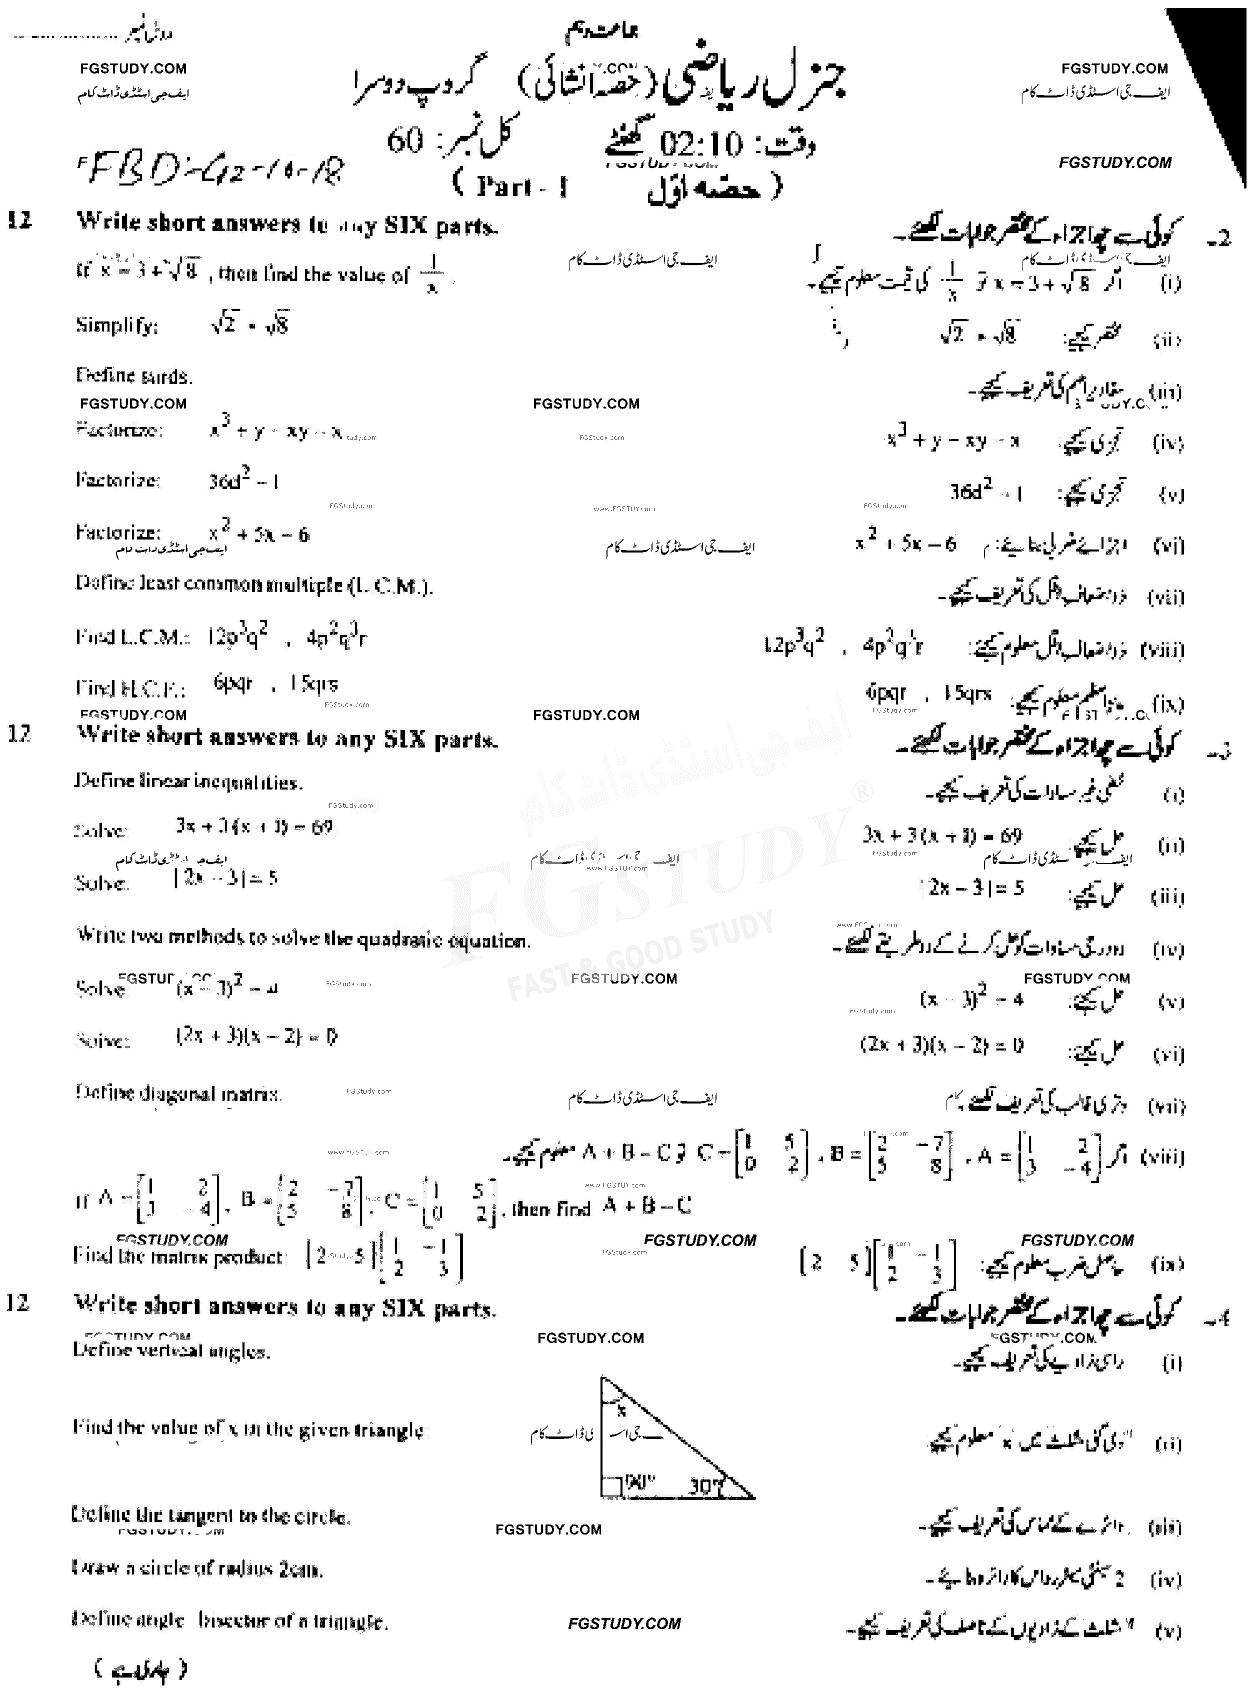 رول نمبر ....................
جماعت دہم
جنرل ریاضی (حصہ انشائی) گروپ دوسرا
FGSTUDY.COM FGSTUDY.COM
ایف جی اسٹڈی ڈاٹ کام ایف جی اسٹڈی ڈاٹ کام
وقت: 02:10 گھنٹے کل نمبر: 60
FBD-G2-10-18 FGSTUDY.COM
( Part - I حصہ اوّل )
12 Write short answers to any SIX parts. کوئی سے چھ اجزاء کے مختصر جوابات لکھئے۔ 2۔
If x = 3 + √8 , then find the value of 1/x . اگر x = 3 + √8 ہو 1/x کی قیمت معلوم کیجیے۔ (i)
Simplify: √2 × √8 مختصر کیجیے: √2 × √8 (ii)
Define surds. مقادیر اصم کی تعریف کیجیے۔ (iii)
FGSTUDY.COM FGSTUDY.COM
Factorize: x³ + y − xy − x تجزی کیجیے: x³ + y − xy − x (iv)
Factorize: 36d² − 1 تجزی کیجیے: 36d² − 1 (v)
Factorize: x² + 5x − 6 اجزائے ضربی بنائیے: x² + 5x − 6 (vi)
Define least common multiple (L.C.M.). ذواضعاف اقل کی تعریف کیجیے۔ (vii)
Find L.C.M.: 12p³q² , 4p²q³r ذواضعاف اقل معلوم کیجیے: 12p³q² , 4p²q³r (viii)
Find H.C.F.: 6pqr , 15qrs معلوم کیجیے: 6pqr , 15qrs (ix)
FGSTUDY.COM FGSTUDY.COM
12 Write short answers to any SIX parts. کوئی سے چھ اجزاء کے مختصر جوابات لکھئے۔ 3۔
Define linear inequalities. خطی غیر مساوات کی تعریف کیجیے۔ (i)
Solve: 3x + 3(x + 1) = 69 حل کیجیے: 3x + 3(x + 1) = 69 (ii)
Solve: |2x − 3| = 5 حل کیجیے: |2x − 3| = 5 (iii)
Write two methods to solve the quadratic equation. دو درجی مساوات کو حل کرنے کے دو طریقے لکھئے۔ (iv)
FGSTUDY.COM FGSTUDY.COM
Solve: (x − 3)² = 4 حل کیجیے: (x − 3)² = 4 (v)
Solve: (2x + 3)(x − 2) = 0 حل کیجیے: (2x + 3)(x − 2) = 0 (vi)
Define diagonal matrix. وتری قالب کی تعریف لکھئے۔ (vii)
اگر A = [1 2; 3 −4] , B = [2 −7; 5 8] , C = [1 5; 0 2] ہو A + B − C معلوم کیجیے۔ (viii)
If A = [1 2; 3 −4] , B = [2 −7; 5 8] , C = [1 5; 0 2] , then find A + B − C
FGSTUDY.COM FGSTUDY.COM FGSTUDY.COM
Find the matrix product: [2 5][1 −1; 2 3] حاصل ضرب معلوم کیجیے: [2 5][1 −1; 2 3] (ix)
12 Write short answers to any SIX parts. کوئی سے چھ اجزاء کے مختصر جوابات لکھئے۔ 4۔
FGSTUDY.COM FGSTUDY.COM FGSTUDY.COM
Define vertical angles. راسی زاویے کی تعریف کیجیے۔ (i)
Find the value of x in the given triangle دی گئی مثلث میں 'x' معلوم کیجیے (ii)
x
90° 30°
Define the tangent to the circle. دائرے کے مماس کی تعریف کیجیے۔ (iii)
FGSTUDY.COM FGSTUDY.COM
Draw a circle of radius 2cm. 2 سینٹی میٹر رداس کا دائرہ بنائیے۔ (iv)
Define angle bisector of a triangle. مثلث کے زاویوں کے ناصف کی تعریف کیجیے۔ (v)
FGSTUDY.COM
( جاری ہے )